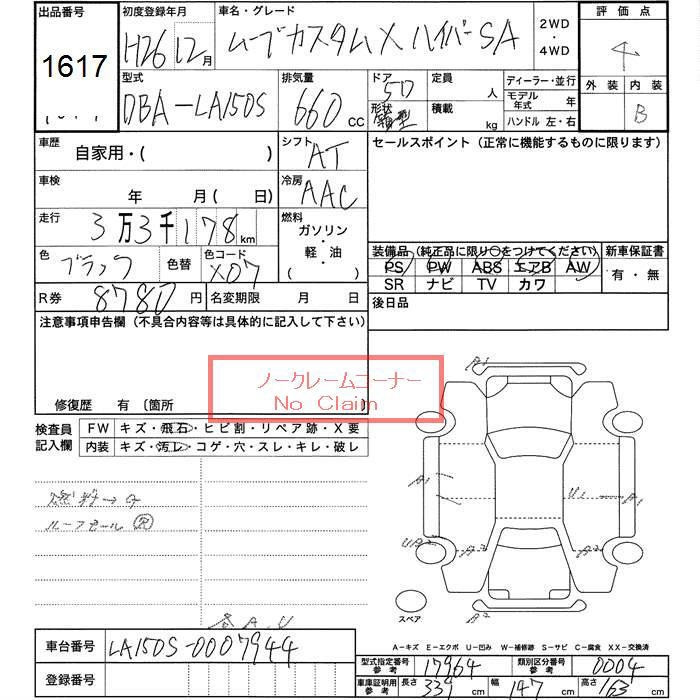 出品番号 初度登録年月 車名・グレード 2WD・4WD 評価点
1617 H26 12月 ムーブカスタムX ハイパーSA 4
型式 排気量 ドア 定員 人 ディーラー・並行 外装 内装
DBA-LA150S 660 cc 5D 形状 箱型 積載 kg モデル年式 年 ハンドル 左・右 B
車歴 自家用・( ) シフト AT セールスポイント (正常に機能するものに限ります)
車検 年 月( 日) 冷房 AAC
走行 3万3千178km 燃料 ガソリン・軽・油 ( )
色 ブラック 色替 色コード X07
装備品 (純正品に限り○をつけてください) 新車保証書
PS PW ABS エアB AW 有・無
SR ナビ TV カワ
R券 8780円 名変期限 月 日 後日品
注意事項申告欄 (不具合内容等は具体的に記入して下さい)
ノークレームコーナー
No Claim
修復歴 有 〔箇所 〕
検査員記入欄 FW キズ・飛石・ヒビ割・リペア跡・X要
内装 キズ・汚レ・コゲ・穴・スレ・キレ・破レ
A1
U1
A1
UA2
A2
A2
スペア
A-キズ E-エクボ U-凹み W-補修跡 S-サビ C-腐食 XX-交換済
車台番号 LA150S-0007944
登録番号
型式指定番号 参考 17964 類別区分番号 参考 0004
車庫証明用 参考 長さ 339 cm 幅 147 cm 高さ 163 cm